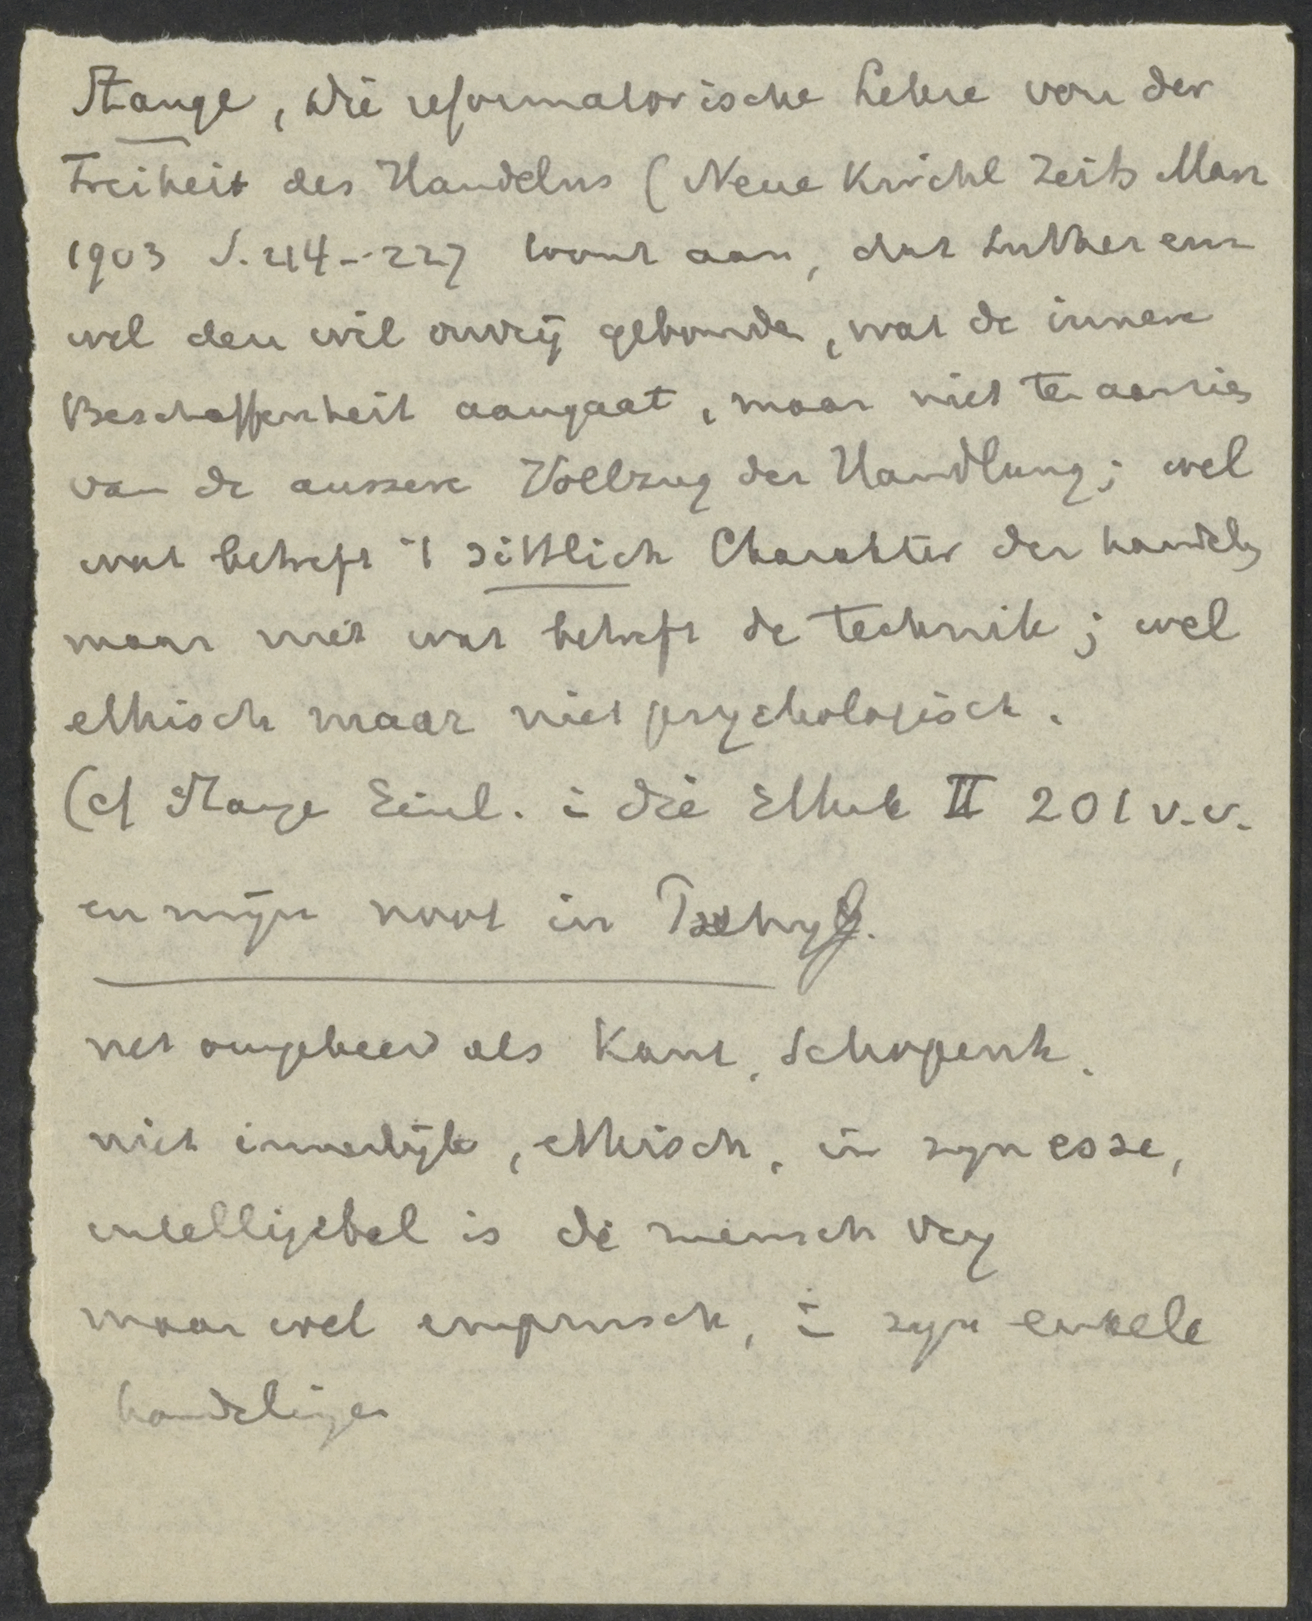 Stange, Die reformatorische Lehre von der
Freiheit des Handelns (Neue Kirchl Zeits Marz
1903 S. 214--227 toont aan, dat Luther enz
wel den wil onvrij gebonden, wat de innere
Beschaffenheit aangaat, maar niet ten aanzien
van de aussere Vollzug der Handlung; wel
wat betreft 't sittlich Charakter der handelg
maar niet wat betreft de Technik; wel
ethisch maar niet psychologisch.
(cf Stange Einl. i die Ethik II 201 v.v.
en mijn noot in
net omgekeerd als Kant, Schopenh.
niet innerlijk, ethisch, in zijn esse,
intelligibel is de mensch vrij
maar wel empirisch, in zijn enkele
handelingen